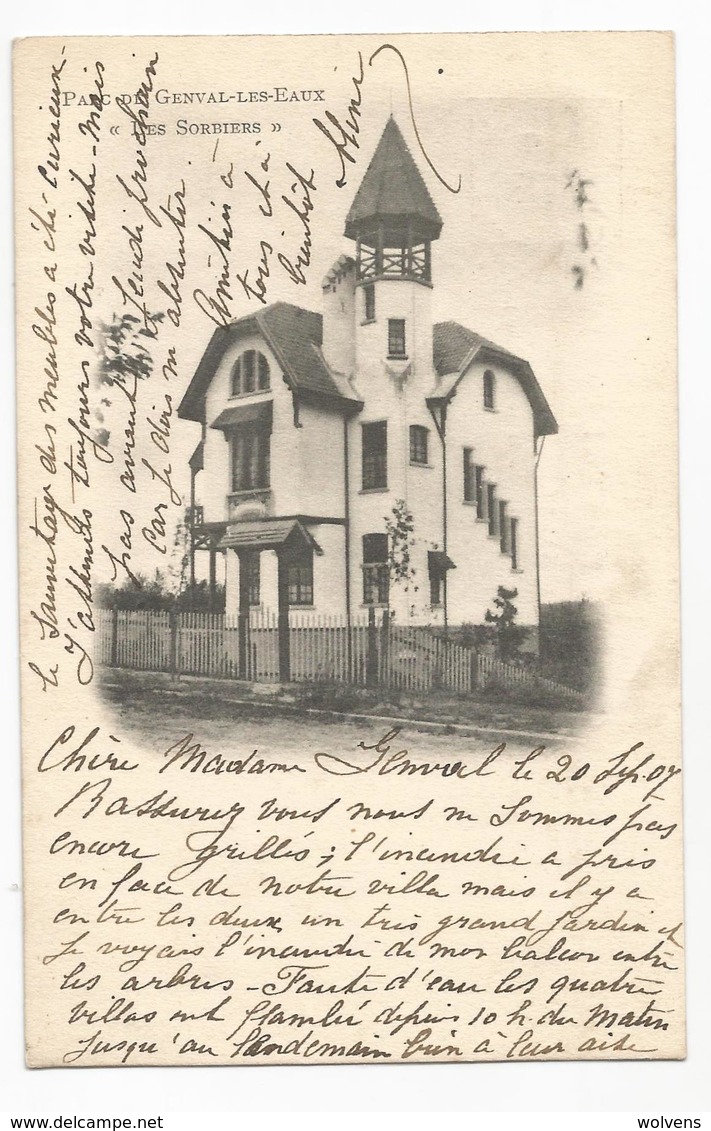 PARC DE GENVAL-LES-EAUX
« LES SORBIERS »
Chère Madame Genval le 20 Sep. 07
Rassurez vous nous ne sommes pas
encore grillés ; l'incendie a pris
en face de notre villa mais il y a
entre les deux un très grand jardin et
je voyais l'incendie de mon balcon entre
les arbres - Faute d'eau les quatre
villas ont flambé depuis 10 h. du Matin
jusqu'au lendemain bien à leur aise
le sauvetage des meubles a été curieux -
J'attends toujours votre visite - Mais
pas avant Jeudi prochain
car je dois m'absenter.
Amitiés à
tous et à
bientôt
wolvens